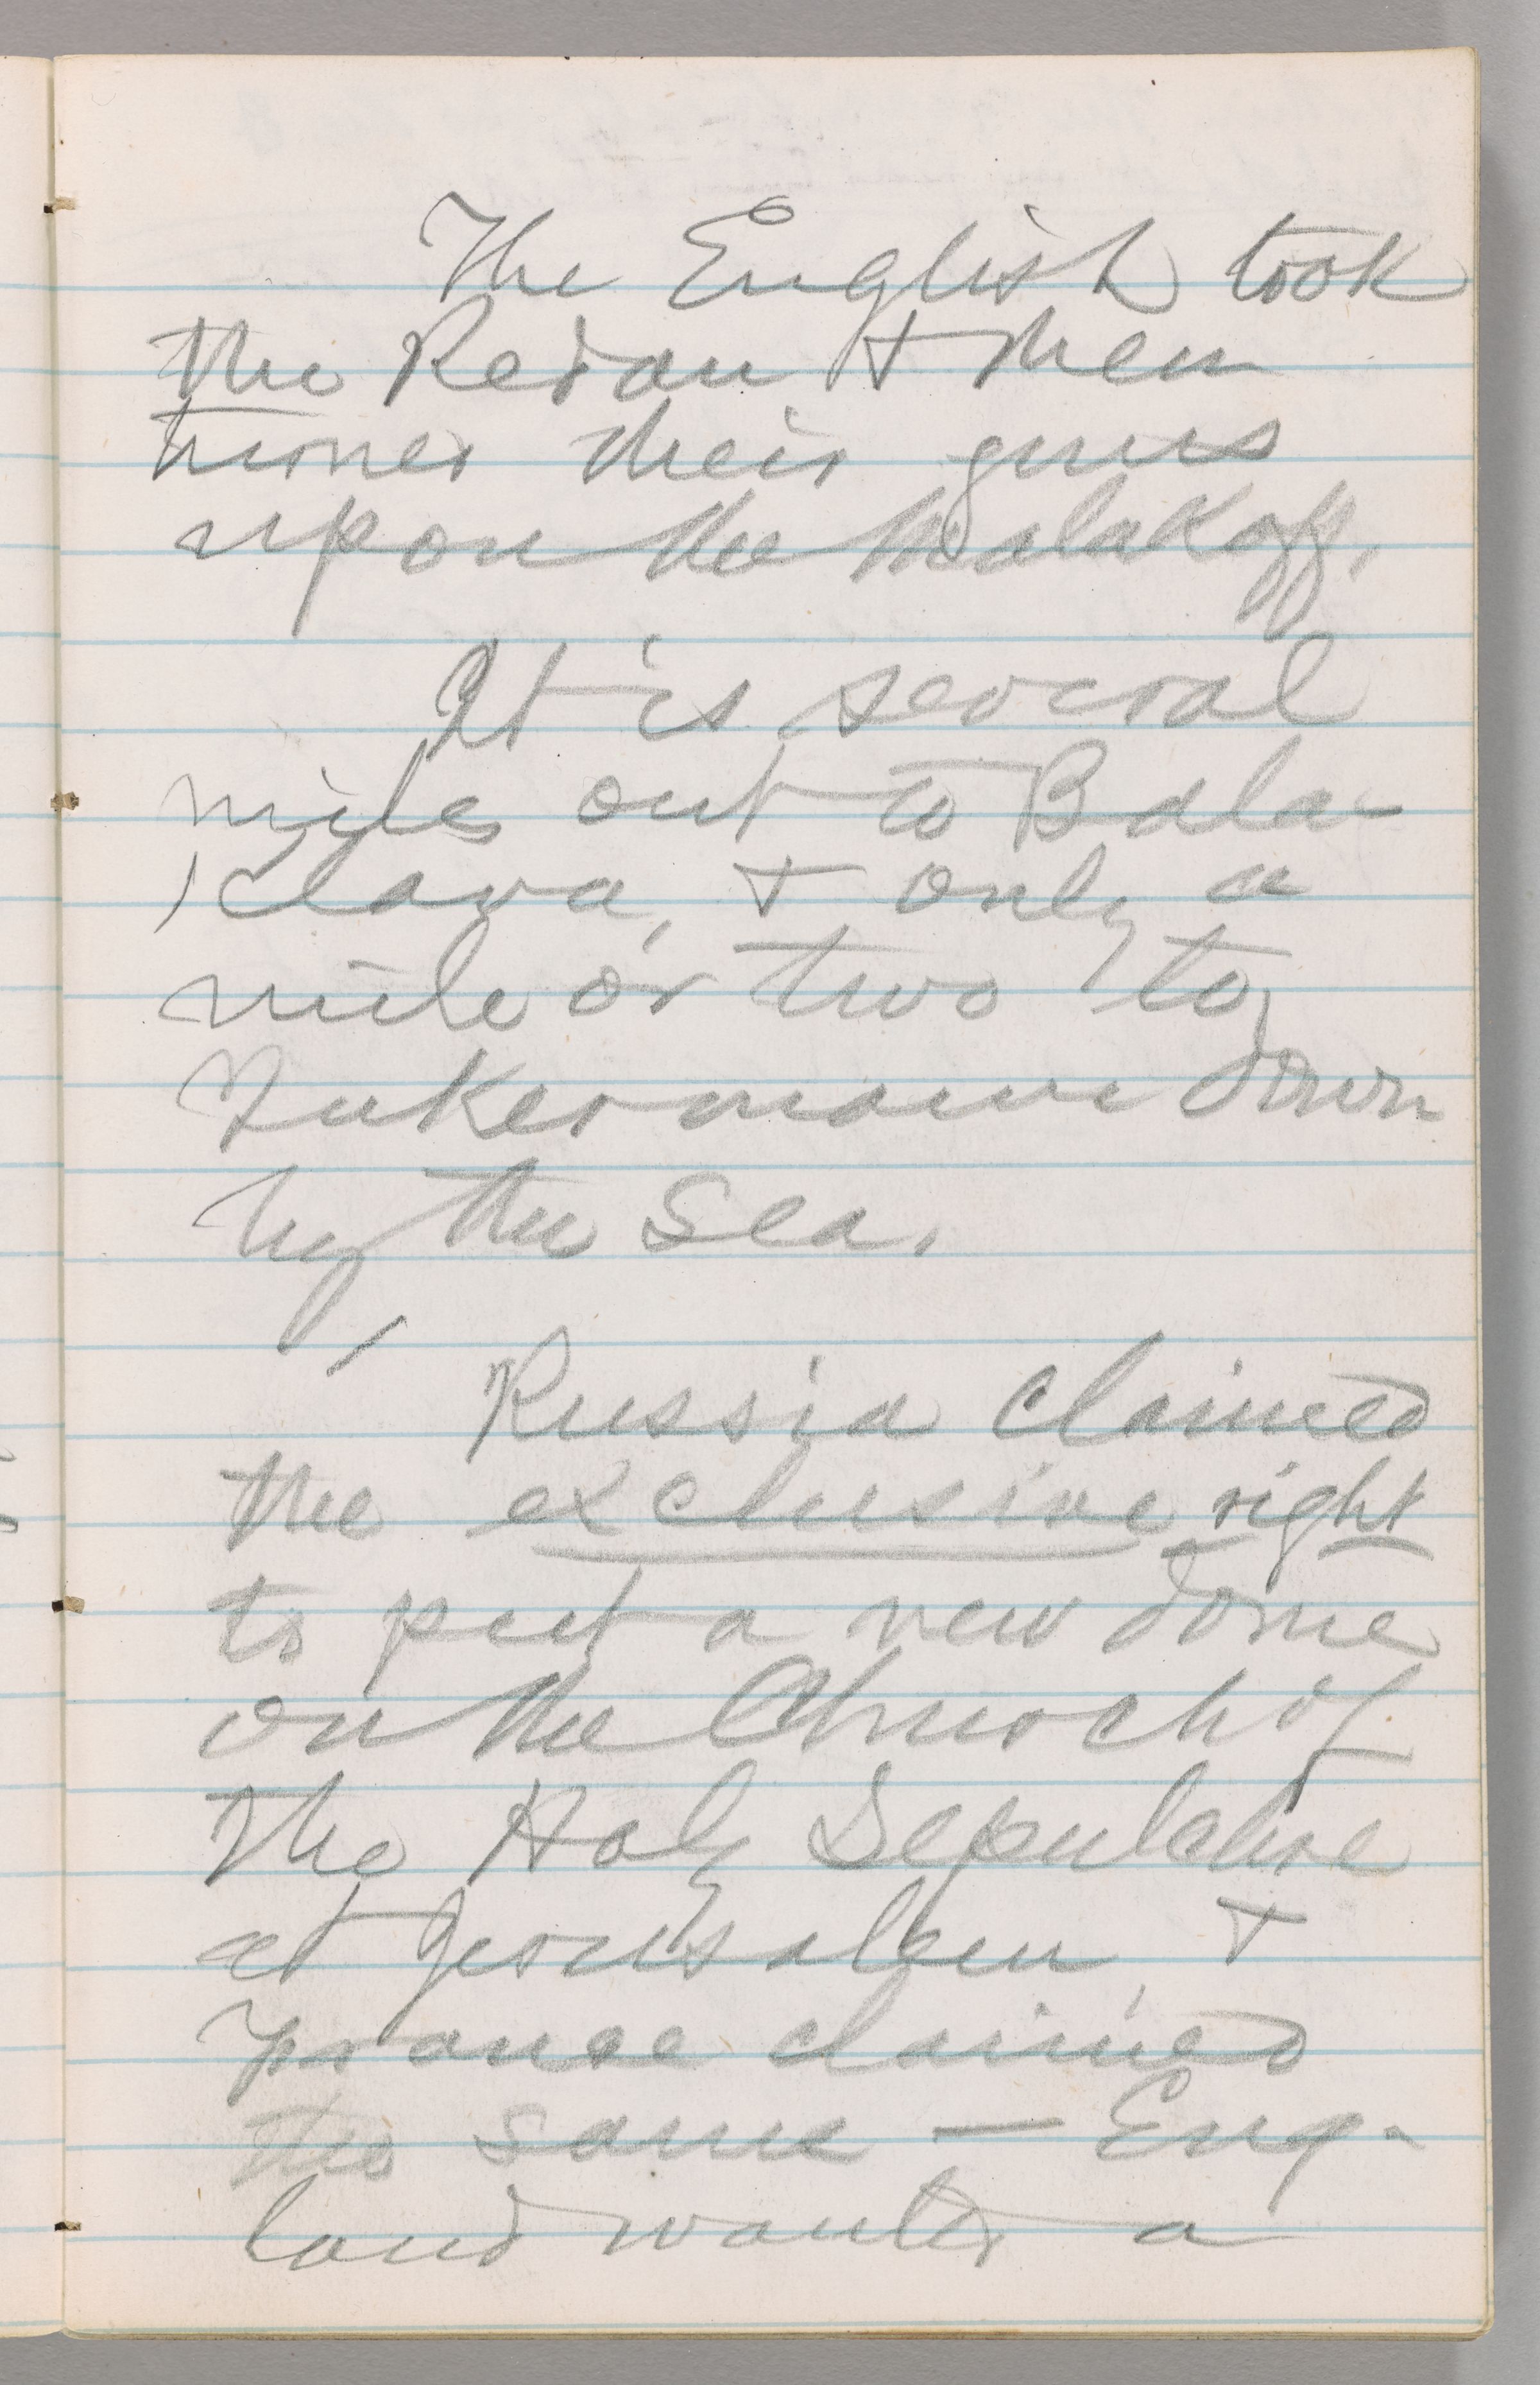 The English took
the Redan & then
turned their guns
upon the Malakoff.
It is several
miles out to Bala-
clava, & only a
mile or two to
Inkermann down
by the Sea.
Russia claimed
the exclusive right
to put a new dome
on the Church of
the Holy Sepulchre
at Jerusalem, &
France claimed
the same — Eng-
land wanted a